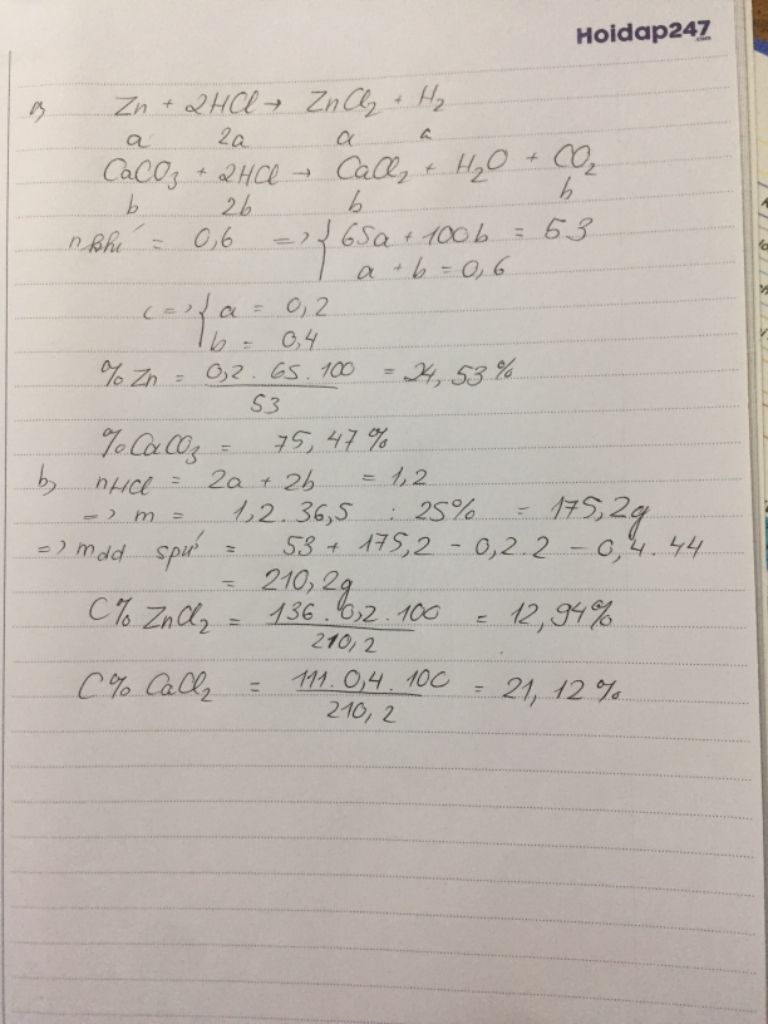 Hoidap247
.com
a, Zn + 2HCl → ZnCl2 + H2
a 2a a a
CaCO3 + 2HCl → CaCl2 + H2O + CO2
b 2b b b
nkhí = 0,6 => { 65a + 100b = 53
a + b = 0,6
<=> { a = 0,2
b = 0,4
%Zn = 0,2 . 65 . 100 = 24,53%
53
%CaCO3 = 75,47%
b, nHCl = 2a + 2b = 1,2
=> m = 1,2 . 36,5 : 25% = 175,2g
=> mdd spứ = 53 + 175,2 - 0,2.2 - 0,4.44
= 210,2g
C% ZnCl2 = 136 . 0,2 . 100 = 12,94%
210,2
C% CaCl2 = 111 . 0,4 . 100 = 21,12%
210,2